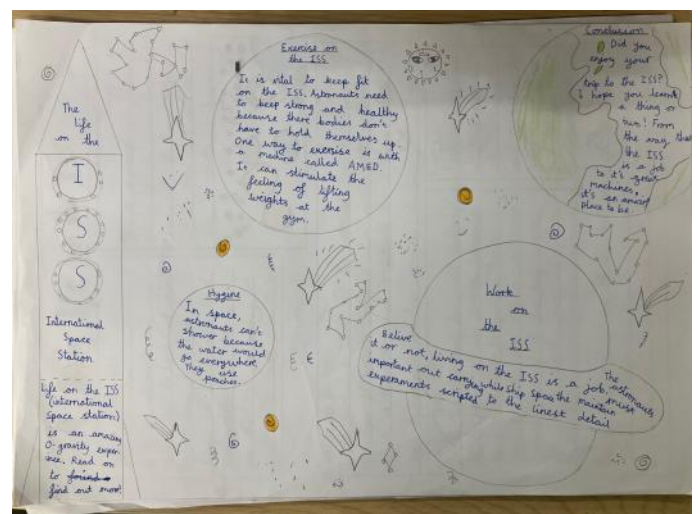 The
life
on the
I
S
S
International
Space
Station
Life on the ISS
(international
Space station)
is an amazing
0-gravity exper-
ience. Read on
to found
find out more!
Exercise on
the ISS
It is vital to keep fit
on the ISS. Astronauts need
to keep strong and healthy
because there bodies don't
have to hold themselves up.
One way to exercise is with
a machine called AMED.
It can stimulate the
feeling of lifting
weights at the
gym.
Hygine
In space,
astronauts can't
shower because
the water would
go everywhere,
they use
pouches.
Work
on
the
ISS
Belive
it or not, living on the ISS is a job. The astronauts
inportant out carrying while ship space the maintain must
experiments scripted to the finest detail
Conclusion
Did you
enjoy your
trip to the ISS?
I hope you learnt
a thing or
two! From
the way, that
the ISS
is a job
to it's great
machines,
it's an amazing
place to be.